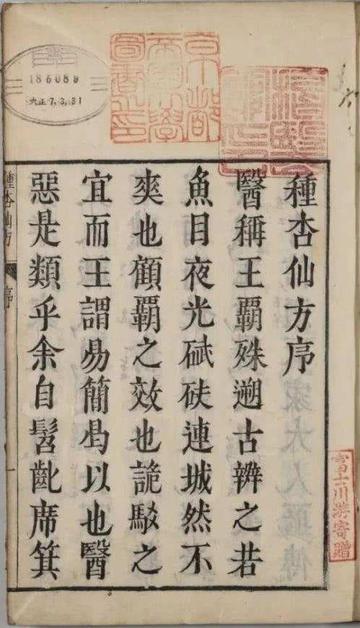 種杏仙方序
醫稱王霸殊遡古辨之若
魚目夜光碔砆連城然不
爽也顧霸之效也詭駁之
宜而王謂易簡曷以也醫
惡是類乎余自髫齔席箕
種杏仙方
序
186089
大正7.3.31
京都
帝國大學
圖書之印
富士川游寄贈